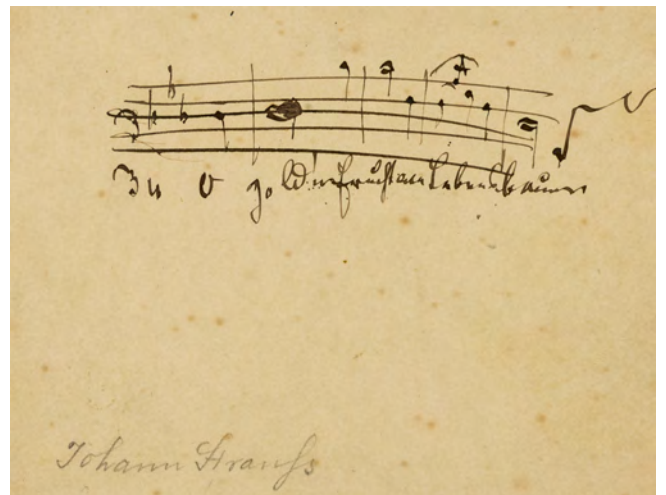 O gold'ne Frucht am Lebensbaum
Johann Strauss